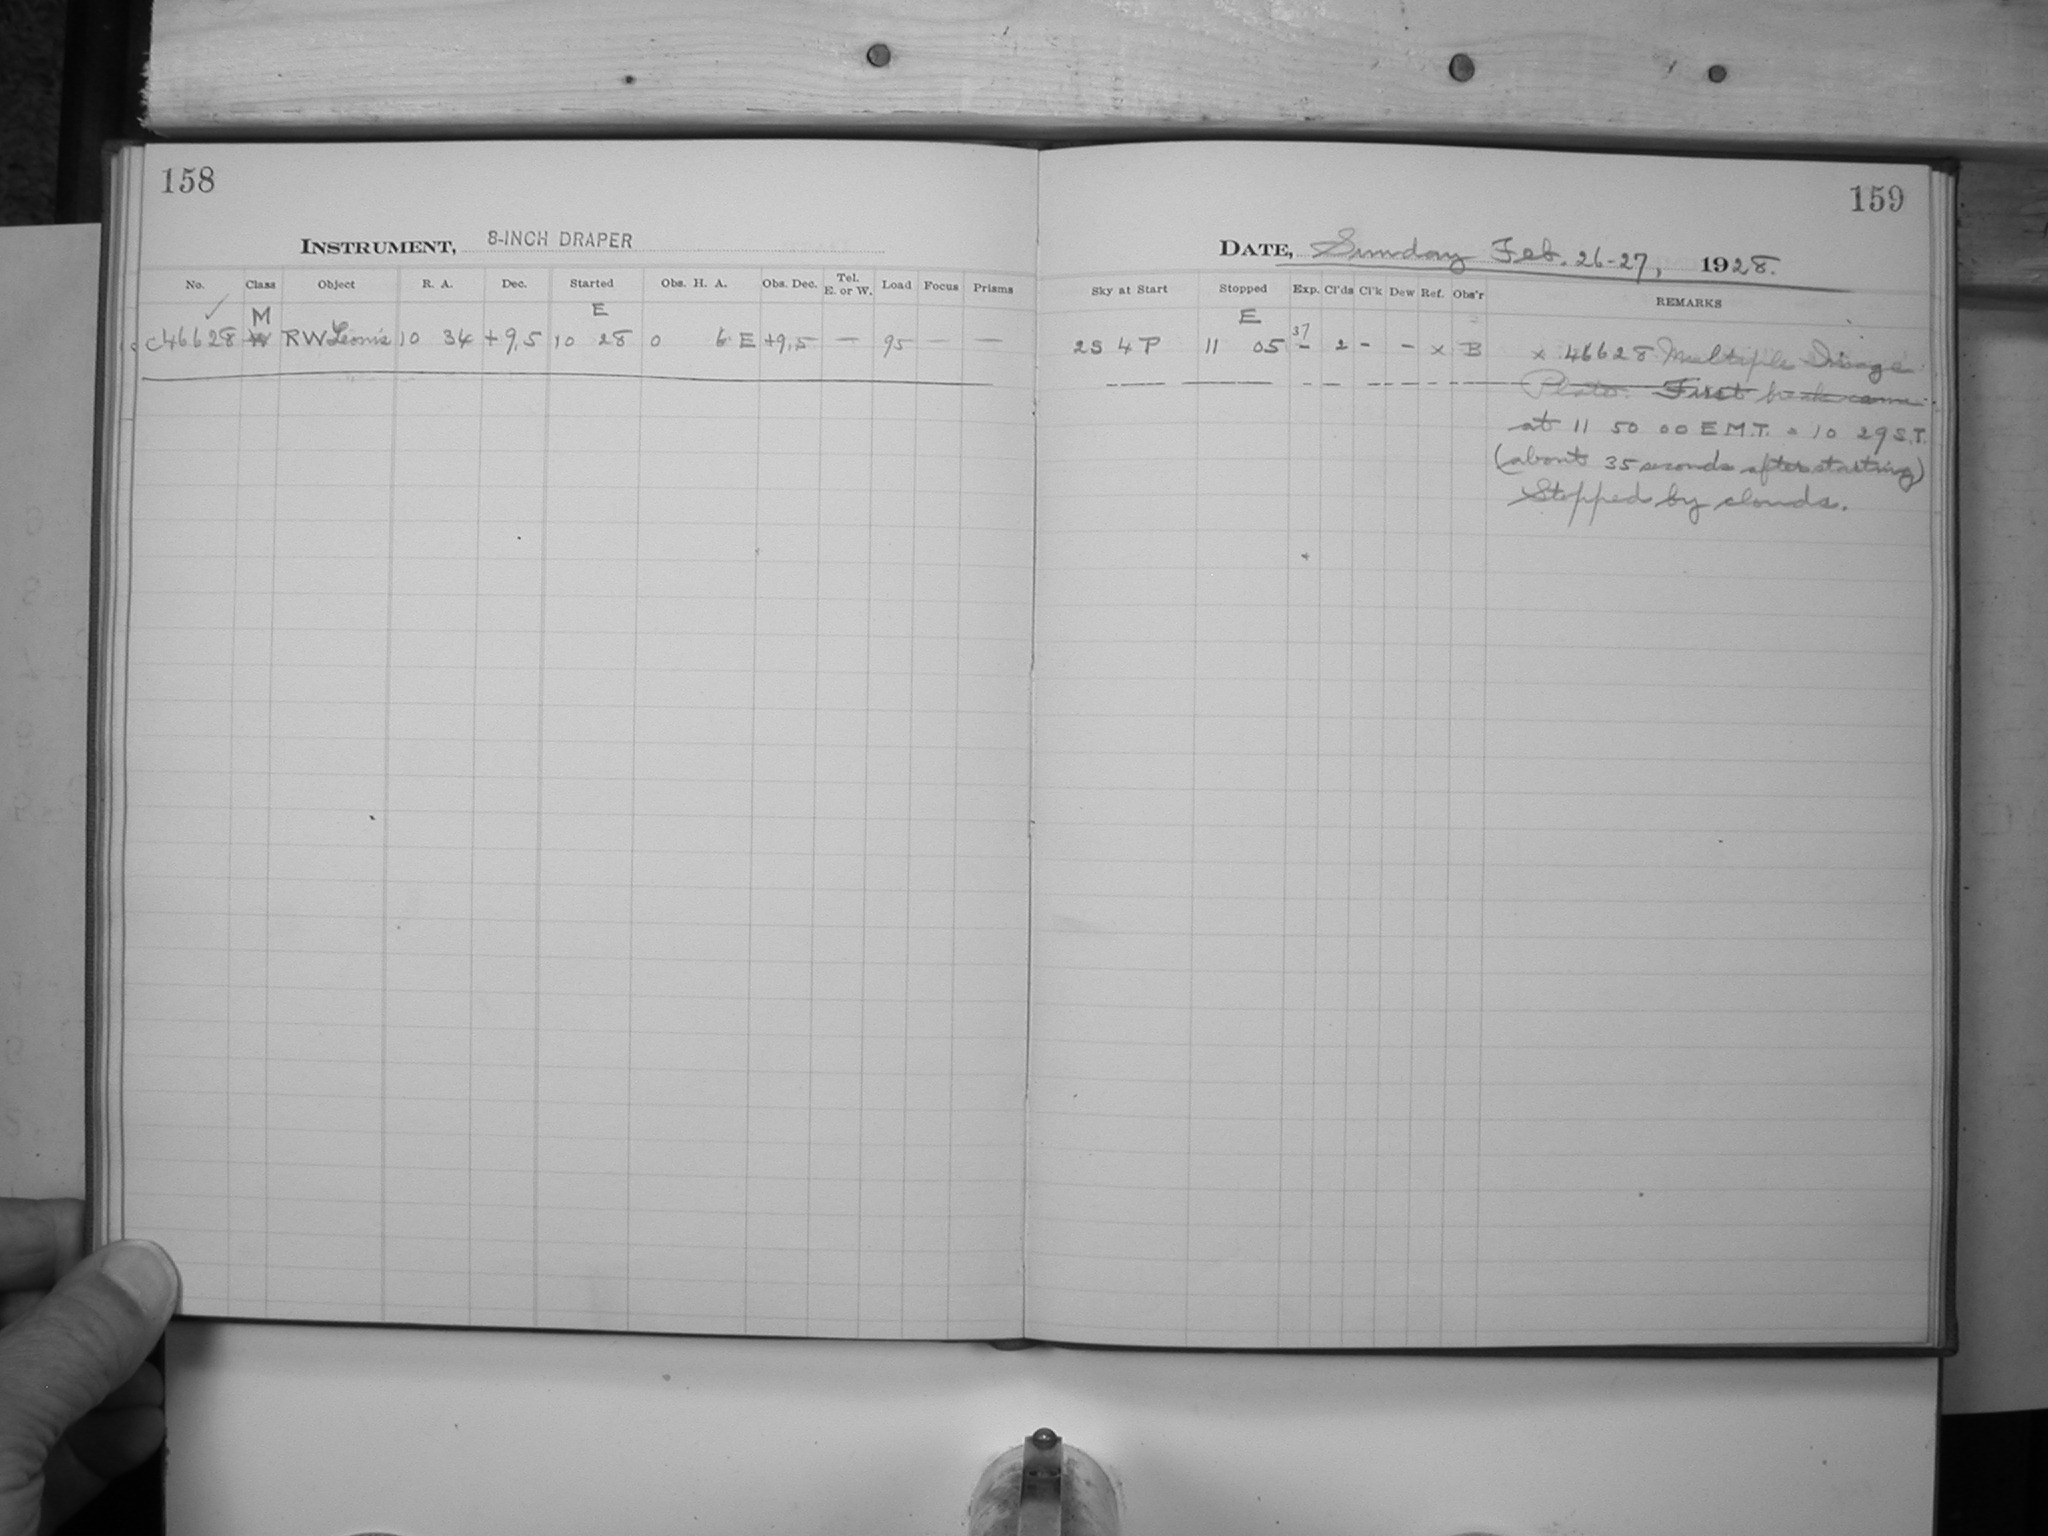 158
INSTRUMENT, 8-INCH DRAPER
No. Class Object R. A. Dec. Started Obs. H. A. Obs. Dec. Tel. E. or W. Load Focus Prisms
M E
c46628 W RW Leonis 10 34 +9.5 10 28 0 6 E +9.5 — 95 — —
159
DATE, Sunday Feb. 26-27, 1928.
Sky at Start Stopped Exp. Cl'ds Cl'k Dew Ref. Obs'r REMARKS
E 37
2S 4 P 11 05 - 2 - - x B x 46628 Multiple Image
Plate. First break came
at 11 50 00 E.M.T. = 10 29 S.T.
(about 35 seconds after starting)
Stopped by clouds.